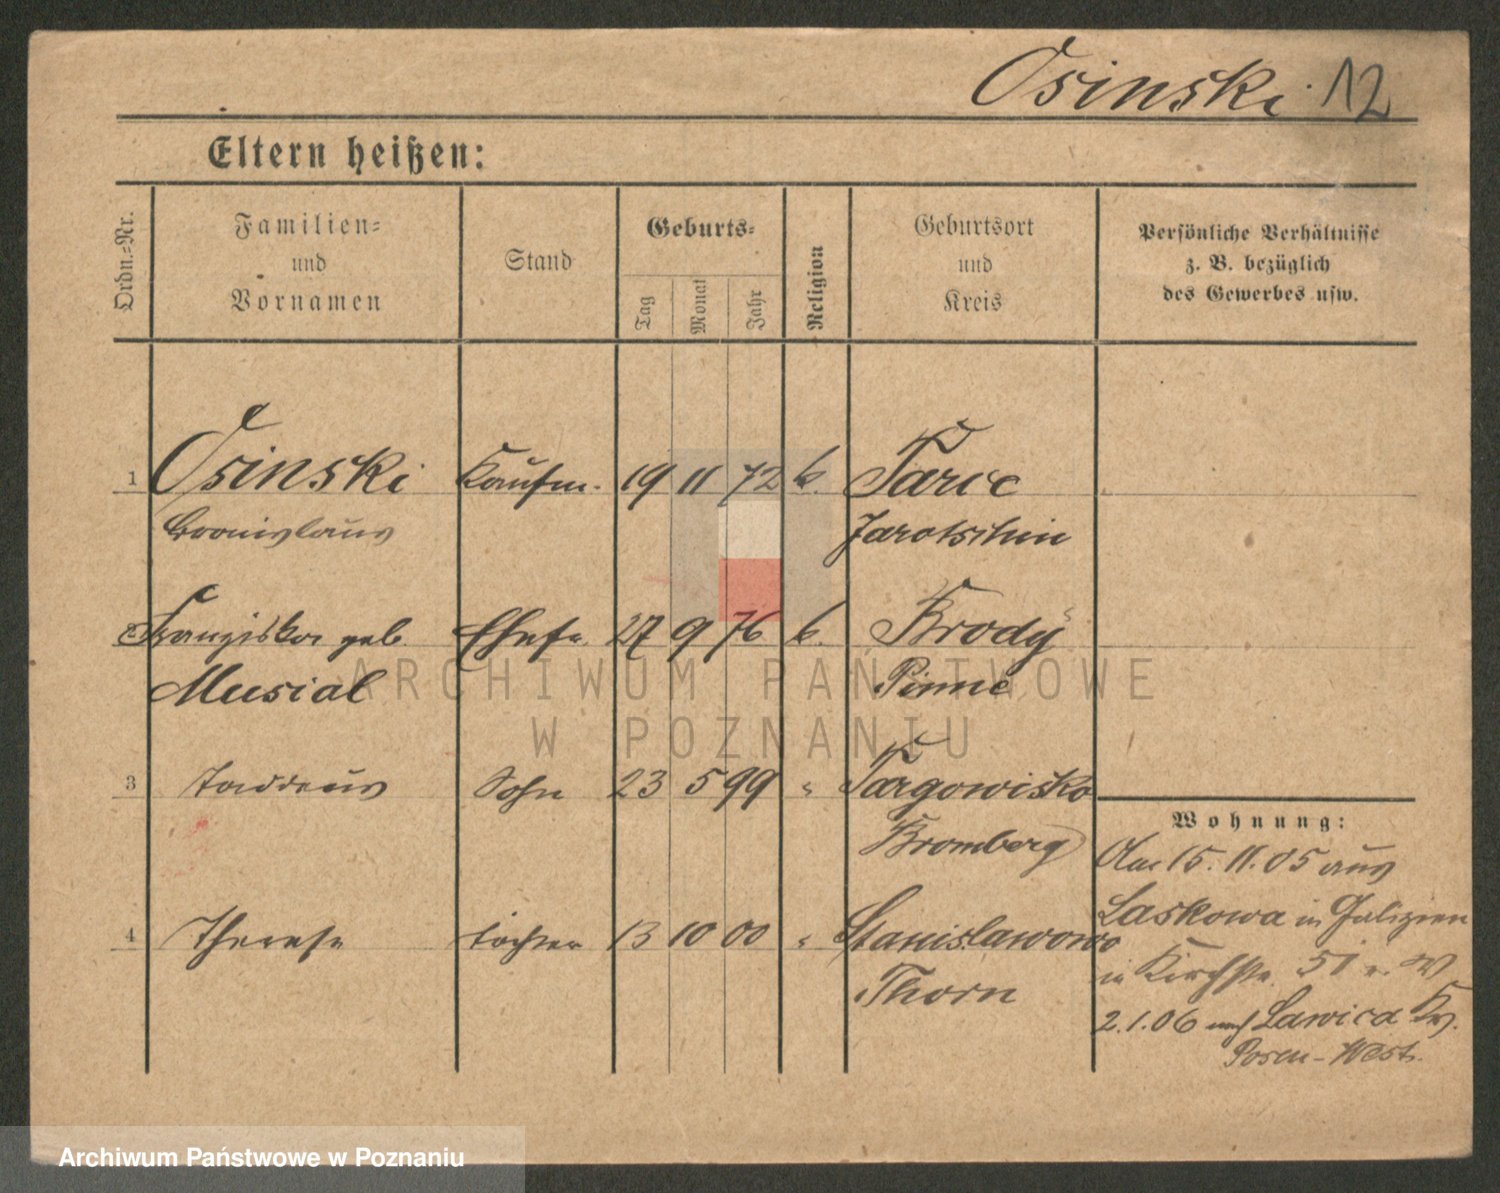 Osinski 12
Eltern heißen:
Ordn.-Nr.
Familien-
und
Vornamen
Stand
Geburts-
Tag
Monat
Jahr
Religion
Geburtsort
und
Kreis
Persönliche Verhältnisse
z. B. bezüglich
des Gewerbes usw.
1 Osinski Kaufm. 19 11 72 k. Tarce
Bronislaus Jarotschin
2 Franziska geb. Ehefr. 27 9 76 k. Brody
Musial Pinne
3 Taddeus Sohn 23 5 99 " Targowisko
Bromberg
4 Therese Tochter 13 10 00 " Stanislawowo
Thorn
Wohnung:
Am 15. 11. 05 aus
Laskowa in Galizien
in Kirchstr. 51
2.1.06 nach Lawica Kr.
Posen-West.
ARCHIWUM PAŃSTWOWE
W POZNANIU
Archiwum Państwowe w Poznaniu